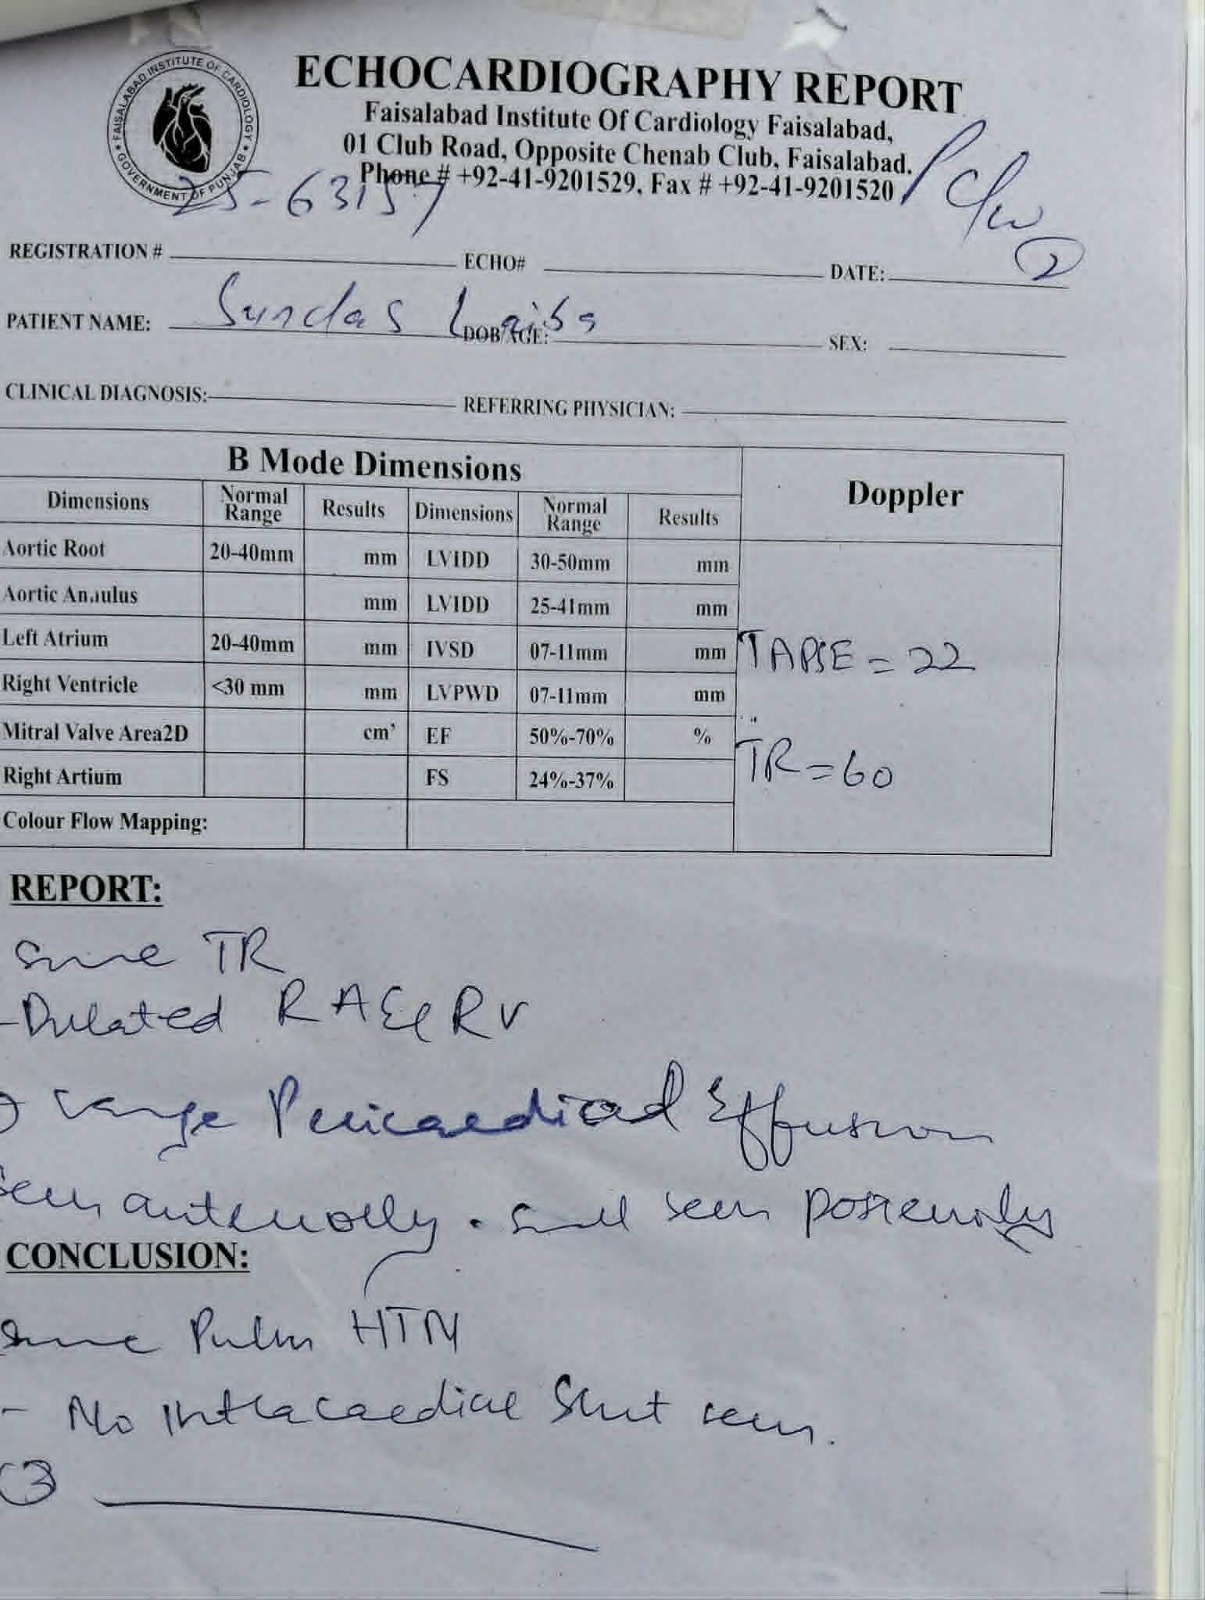 FAISALABAD INSTITUTE OF CARDIOLOGY
GOVERNMENT OF PUNJAB
ECHOCARDIOGRAPHY REPORT
Faisalabad Institute Of Cardiology Faisalabad,
01 Club Road, Opposite Chenab Club, Faisalabad.
Phone # +92-41-9201529, Fax # +92-41-9201520
25-63157
2
REGISTRATION # ECHO# DATE:
PATIENT NAME: Sundas Laiba DOB/AGE: SEX:
CLINICAL DIAGNOSIS: REFERRING PHYSICIAN:
B Mode Dimensions Doppler
Dimensions Normal Range Results Dimensions Normal Range Results
Aortic Root 20-40mm mm LVIDD 30-50mm mm
Aortic Annulus mm LVIDD 25-41mm mm
Left Atrium 20-40mm mm IVSD 07-11mm mm
TAPSE = 22
Right Ventricle <30 mm mm LVPWD 07-11mm mm
Mitral Valve Area2D cm² EF 50%-70% %
TR = 60
Right Artium FS 24%-37%
Colour Flow Mapping:
REPORT:
TR
- Dilated RA & RV
Large Pericardial Effusion
seen anteriorly. small seen posteriorly
CONCLUSION:
Pulm HTN
- No intracardiac Shut seen.
3